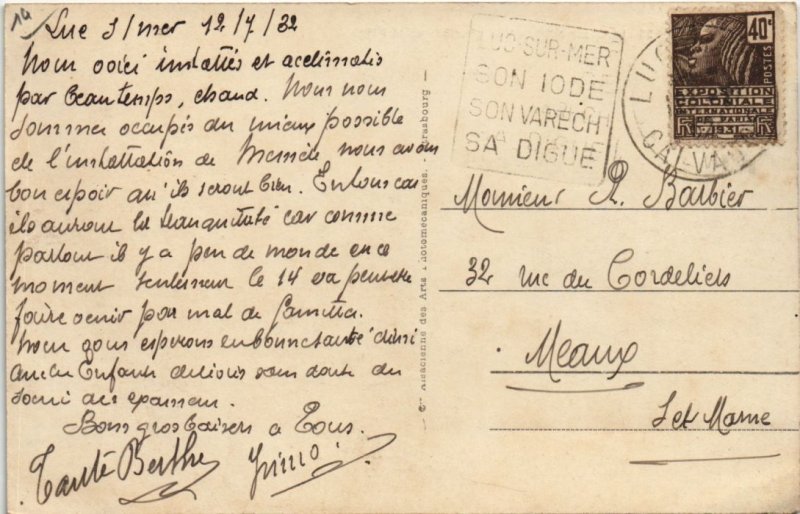 Luc s/mer 12/7/32
Nous voici installés et acclimatés
par beau temps, chaud. Nous nous
sommes occupés du mieux possible
de l'installation de nous avons
bon espoir qu'ils seront bien. En tous cas
ils auront la tranquilité car comme
partout il y a peu de monde en ce
moment seulement le 14 va peut être
faire venir pas mal de famille.
Nous vous espérons en bonne santé ainsi
que les Enfants délivrés sans doute du
souci des examens.
Bons gros baisers à Tous.
Tante Berthe
LUC-SUR-MER
SON IODE
SON VARECH
SA DIGUE
LUC
CALVA
40c
POSTES
EXPOSITION
COLONIALE
INTERNATIONALE
PARIS
1931
Alsacienne des Arts Photomécaniques. - Strasbourg -
Monsieur R. Barbier
32 rue des Cordeliers
Meaux
S et Marne